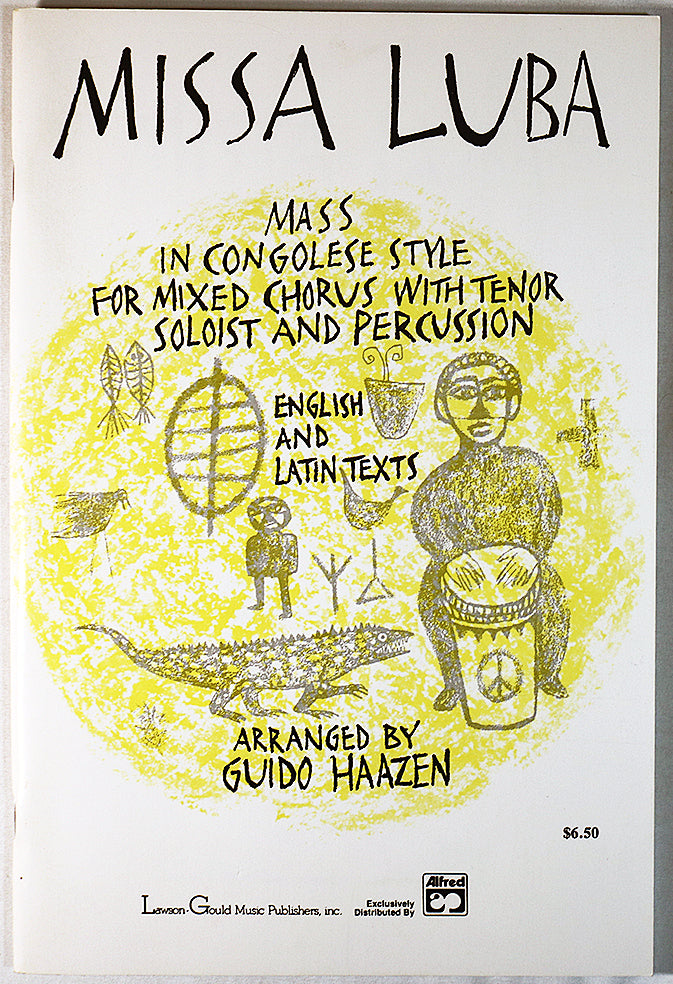 MISSA LUBA
MASS
IN CONGOLESE STYLE
FOR MIXED CHORUS WITH TENOR
SOLOIST AND PERCUSSION
ENGLISH
AND
LATIN TEXTS
ARRANGED BY
GUIDO HAAZEN
$6.50
Lawson-Gould Music Publishers, inc.
Exclusively
Distributed By
Alfred